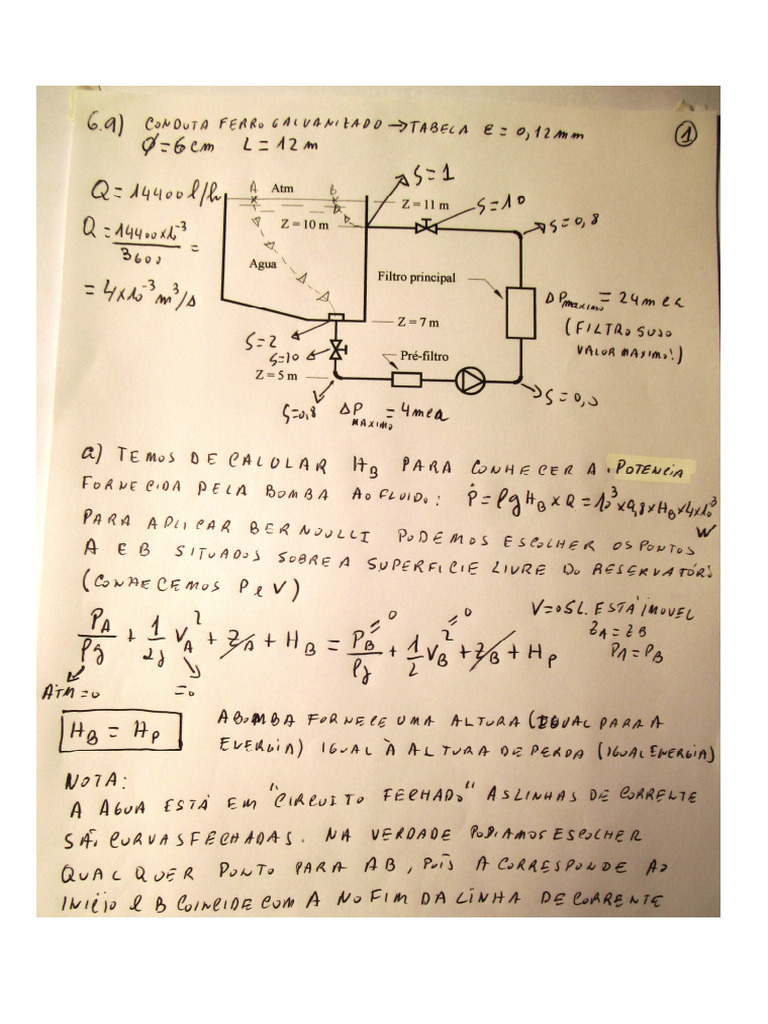 6.9) CONDUTA FERRO GALVANIZADO → TABELA ε = 0,12mm
①
Ø = 6cm L = 12m
Q = 14400 l/h
Q = 14400×10⁻³ / 3600 =
= 4×10⁻³ m³/s
A Atm B
Z = 11 m
Z = 10 m
Agua
Z = 7 m
Z = 5 m
ζ = 1
ζ = 10
ζ = 0,8
Filtro principal
ΔPmaximo = 24mca
(FILTRO SUJO
VALOR MAXIMO!)
ζ = 2
ζ = 10
Pré-filtro
ζ = 0,8
ΔP MAXIMO = 4mca
a) TEMOS DE CALULAR HB PARA CONHECER A POTENCIA
FORNECIDA PELA BOMBA AO FLUIDO: Ṗ = ρg HB × Q = 10³ × 9,8 × HB × 4×10⁻³ W
PARA APLICAR BERNOULLI PODEMOS ESCOLHER OS PONTOS
A E B SITUADOS SOBRE A SUPERFICIE LIVRE DO RESERVATÓRIO
(CONHECEMOS P e V)
V = 0 SL. ESTÁ IMOVEL
ZA = ZB
PA = PB
PA/ρg + 1/2g VA² + ZA + HB = PB/ρg + 1/2 VB² + ZB + HP
= 0 = 0
ATM = 0 = 0
HB = HP
A BOMBA FORNECE UMA ALTURA (IGUAL PARA A
ENERGIA) IGUAL À ALTURA DE PERDA (IGUAL ENERGIA)
NOTA:
A AGUA ESTÁ EM "CIRCUITO FECHADO" AS LINHAS DE CORRENTE
SÃO CURVAS FECHADAS. NA VERDADE PODIAMOS ESCOLHER
QUALQUER PONTO PARA AB, POIS A CORRESPONDE AO
INICIO e B COINCIDE COM A NO FIM DA LINHA DE CORRENTE